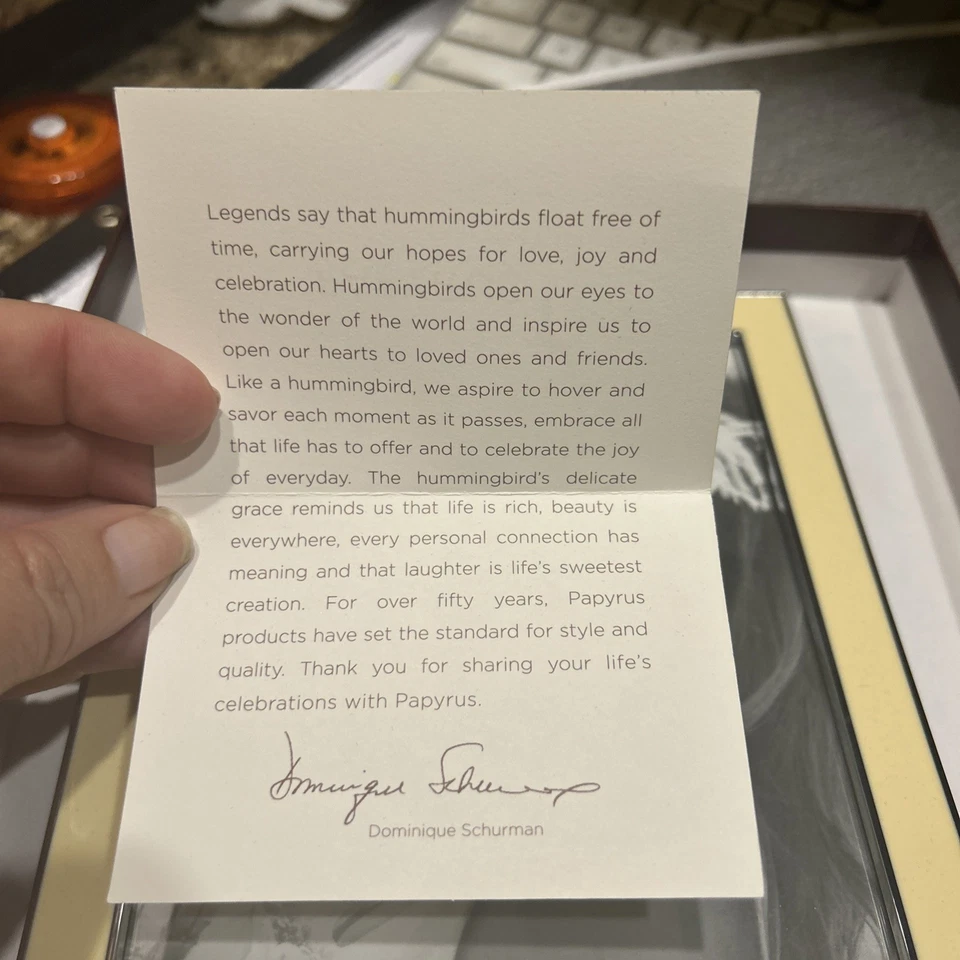 Legends say that hummingbirds float free of
time, carrying our hopes for love, joy and
celebration. Hummingbirds open our eyes to
the wonder of the world and inspire us to
open our hearts to loved ones and friends.
Like a hummingbird, we aspire to hover and
savor each moment as it passes, embrace all
that life has to offer and to celebrate the joy
of everyday. The hummingbird's delicate
grace reminds us that life is rich, beauty is
everywhere, every personal connection has
meaning and that laughter is life's sweetest
creation. For over fifty years, Papyrus
products have set the standard for style and
quality. Thank you for sharing your life's
celebrations with Papyrus.
Dominique Schurman
Dominique Schurman